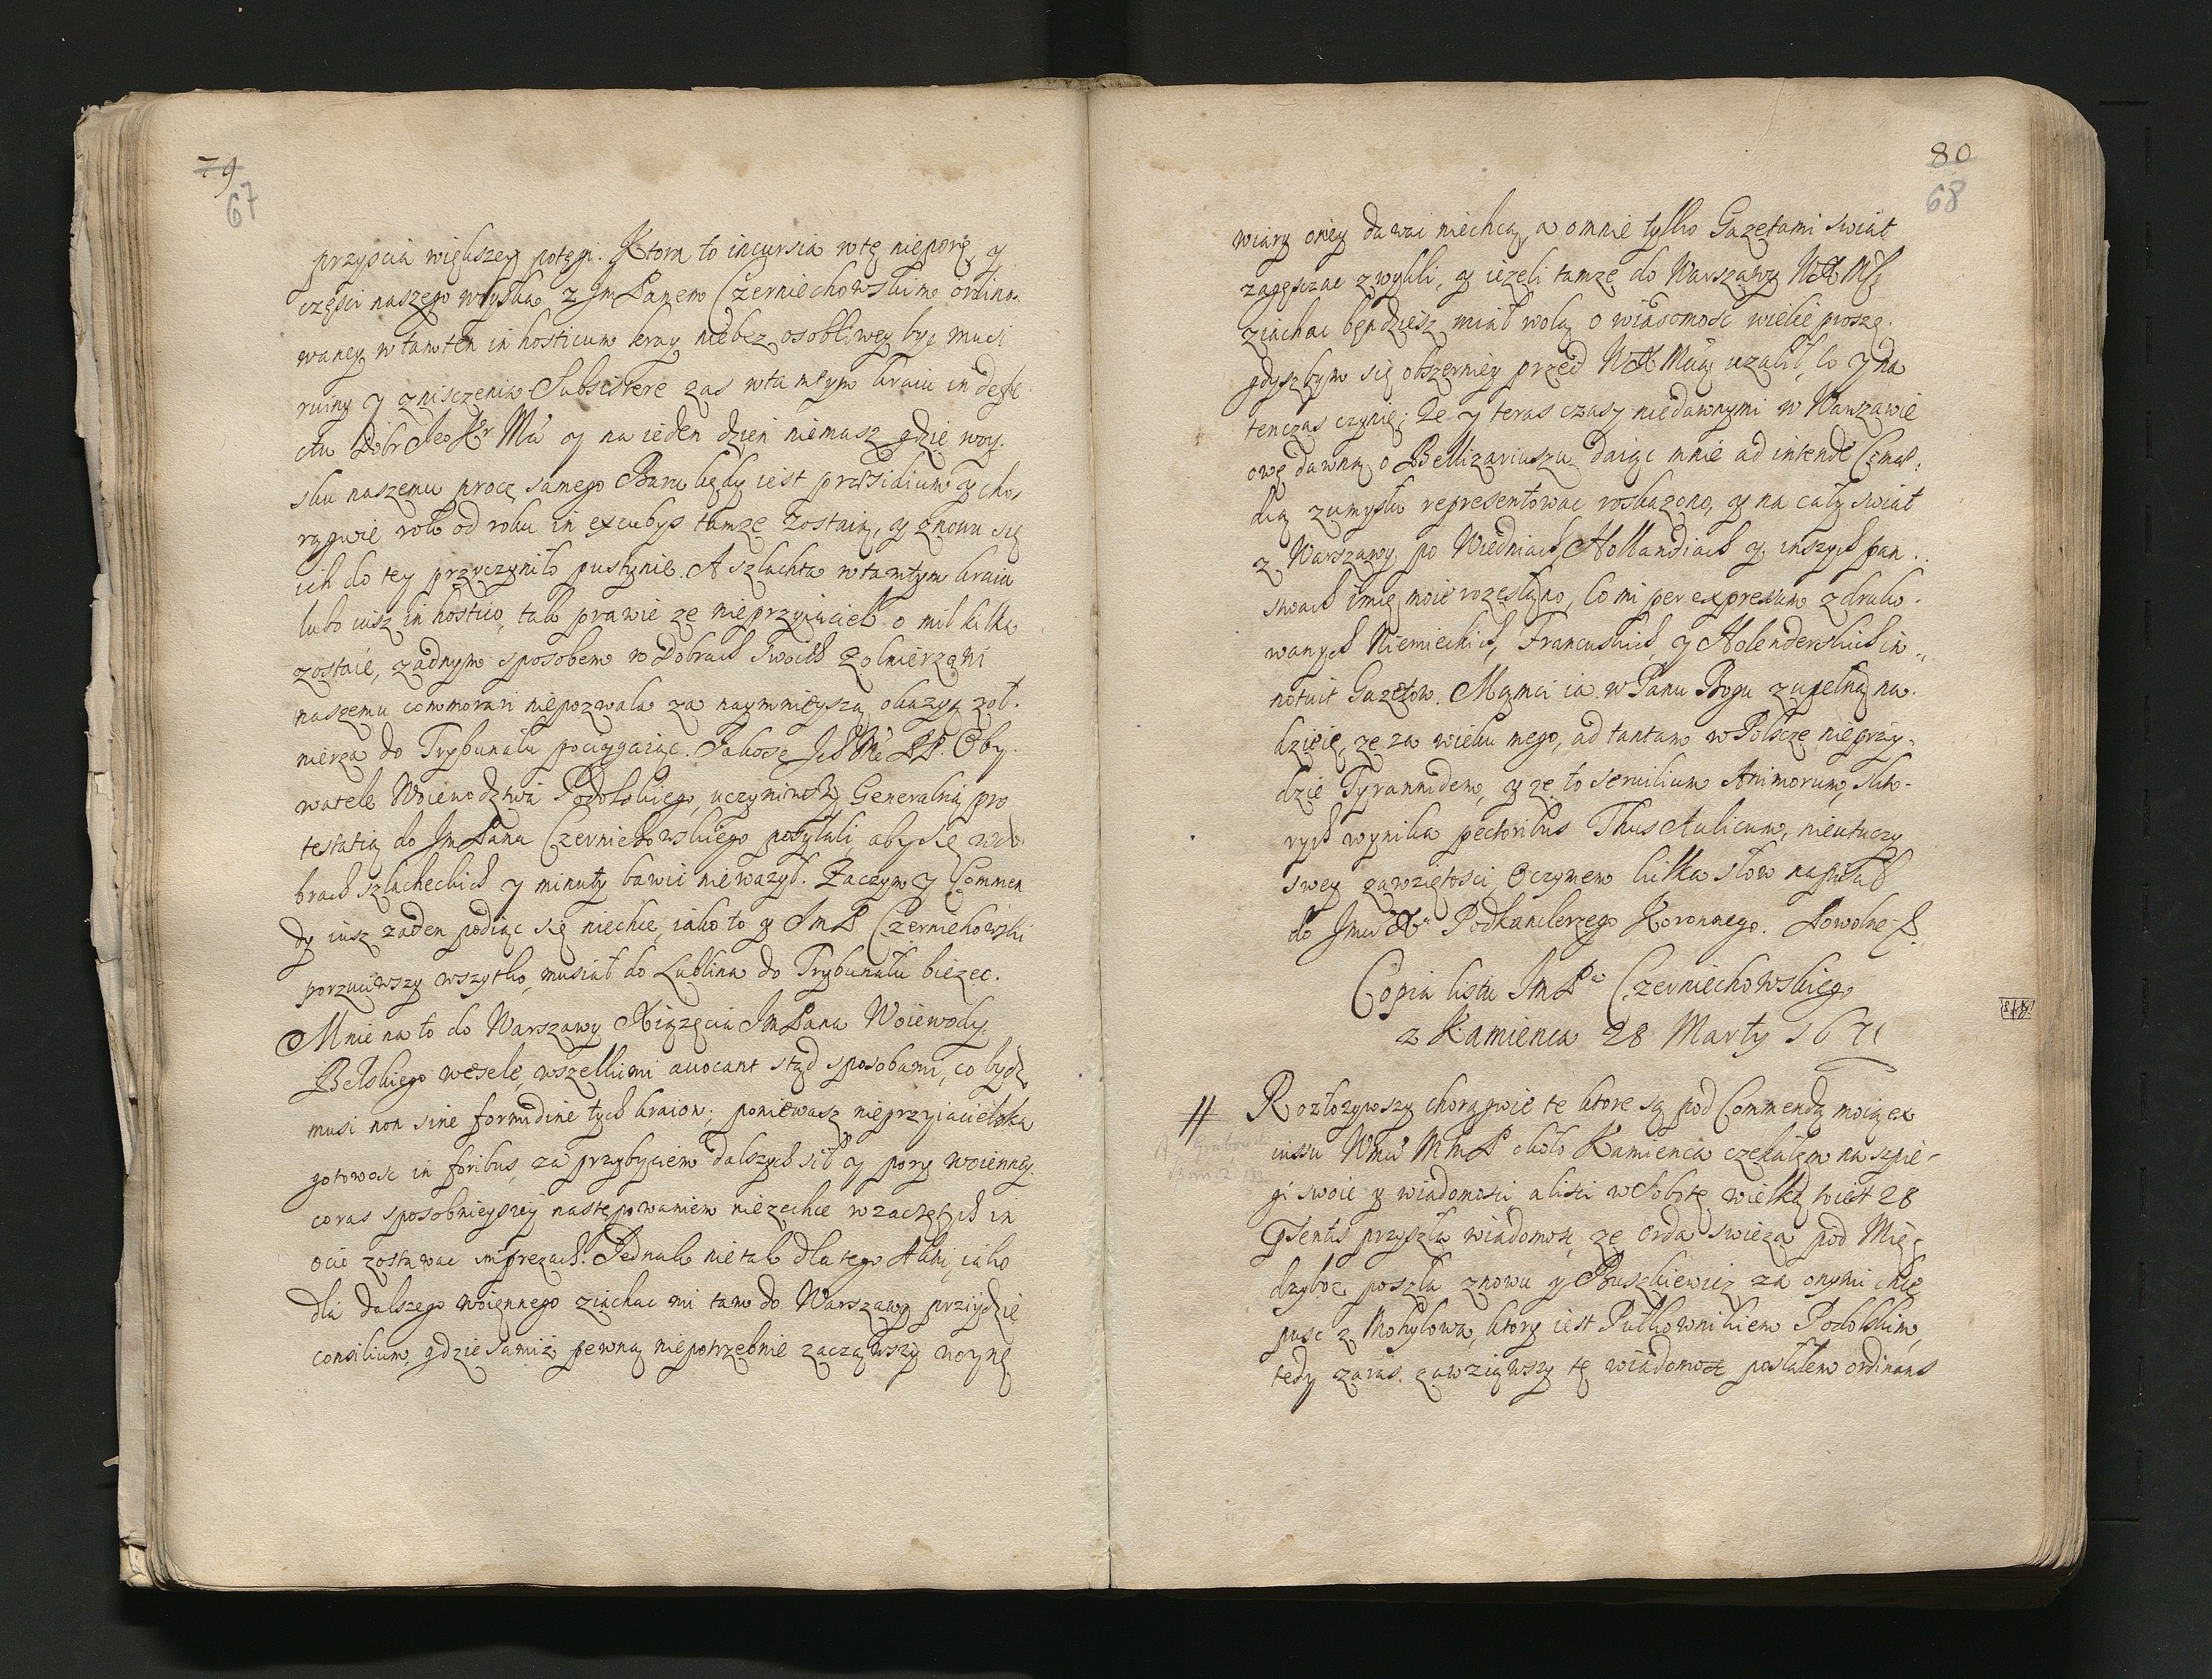 79
67
przyscia większey potęgi. Ktora to incursia w tę nieporę y
części naszego woyska z JmPanem Czerniechowskim ordino
waney w tamten in hosticum kray niebez osobliwey być musi
ruiny y zniszczenia. Subsistere zas wtamtym kraiu in defe
ctu Dobr Jeo Kr Mci y na ieden dzien niemasz gdzie woy.
sku naszemu procz samego Baru kędy iest praesidium y cho,
rągwie rok od roku in excubys tamze zostaią, y znowu się
ich do tey przyczyniło pustynie. A szlachta wtamtym kraiu
lubo iusz in hostico, tak prawie ze nieprzyiaciel o mil kilka
zostaie, zadnym sposobem w Dobrach swoich zolnierzowi
naszemu commorari niepozwala za naymnieyszą okazyą zoł.
nierza do Trybunału pociągaiąc. Jakosz Ich Mć PP. Oby.
watele Woiewodztwa Podolskiego, uczyniwszy Generalną pro
testatią do JmPana Czerniechowskiego posyłali, aby się w do
brach szlacheckich y minuty bawić niewazył. Zaczym y Commen
dy iusz zaden podiąc się niechce, iako to y JmP Czerniehowski
porzuciwszy wszytko, musiał do Lublina do Trybunału biezec.
Mnie na to do Warszawy Xiązęcia JmPana Woiewody
Bełskiego wesele, wszelkimi avocant stąd sposobami, co bydz
musi non sine formidine tych kraiow; poniewasz nieprzyiacielska
gotowosc in foribus, za przybyciem dalszych sił y pory woienney
coras sposobnieyszey następowaniem niezechce w zaczętych in
ocio zostawac imprezach. Jednak nietak dla tego Aktu, iako
dla dalszego woiennego ziachac mi tam do Warszawy przyidzie
consilium, gdzie samiz pewną niepotrzebnie zacząwszy woynę
80
68
wiary oney dawac niechcą, a omnie tylko Gazetami swiat
zagęszcac zwykli, y iezeli tamze do Warszawy WX Mć
ziachac będziesz miał wolą o wiadomosc wielce proszę.
gdyszbym się obszerniey przed WX Mcią uzalił, co y na
tenczas czynię; Ze y teras czasy niedawnymi w Warszawie
owę dawną o Bellizariuszu daiąc mnie ad intende
dią zumysłu repraesentowac roskazono, y na cały swiat
z Warszawy po Wiedniach Hollandiach y inszych pan.
stwach imię moie rozesłano, co mi per expressum zdruko.
wanych Niemieckich, Francuskich, y Holenderskich in
notuit Gazetow. Mamci ia w Panu Bogu zupełną na.
dzieię, ze za wieku mego, ad tantam w Polscze nieprzy.
dzie Tyrannidem, y ze to servilium Animorum, skto-
rych wynika pectoribus Thus Aulicum, nieutuczy
swey zawziętosci. Oczymem kilka słow napisał
do Jmci Xa Podkanclerzego Koronnego. Powolne.
Copia listu JmPa Czerniechowskiego
z Kamienca 28 Marty 1671
Rozłozywszy chorągwie te ktore są pod Commendą moią ex
iussu Wmci MmP około Kamienca czekałem na szpie-
gi swoie y wiadomosci alisci w Sobotę wielką toiest 28
praesentis przyszła wiadomosc, ze orda swieza pod Mię
dzyboz poszła znowu y Buszkiewicz za onymi chce
pusc z Mohylowa, ktory iest Pułkownikiem Podolskim,
tedy zaras zawziąwszy tę wiadomosc posłałem ordinans